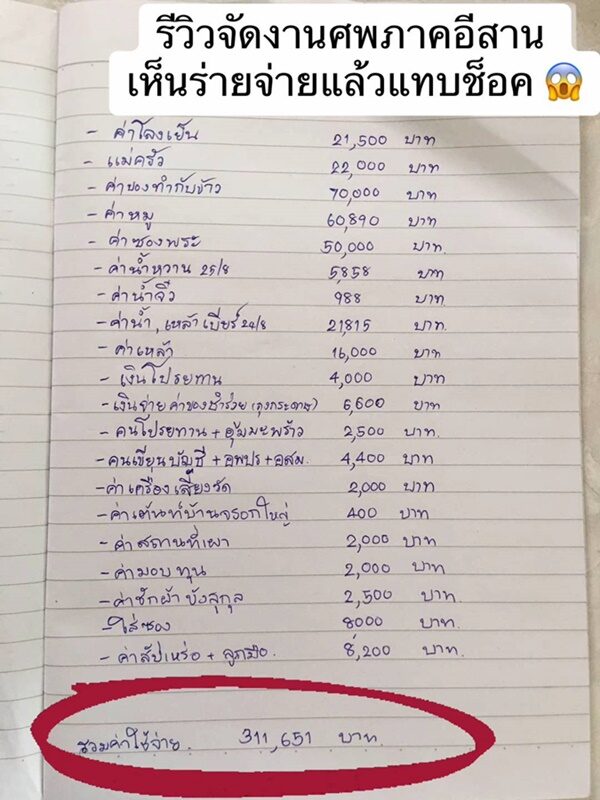 รีวิวจัดงานศพภาคอีสาน
เห็นร่ายจ่ายแล้วแทบช็อค 😱
- ค่าโลงเย็น 21,500 บาท
- แม่ครัว 22,000 บาท
- ค่าของทำกับข้าว 70,000 บาท
- ค่าหมู 60,890 บาท.
- ค่าซองพระ 50,000 บาท.
- ค่าน้ำหวาน 25/8 5,858 บาท
- ค่าน้ำจิ้ว 988 บาท
- ค่าน้ำ, เหล้า เบียร์ 24/8 21,815 บาท.
- ค่าเหล้า 16,000 บาท
- เงินโปรยทาน 4,000 บาท
- เงินจ่ายค่าของชำร่วย (ถุงกระดาษ) 6,600 บาท
- คนโปรยทาน + อุ้มมะพร้าว 2,500 บาท.
- คนเขียนบัญชี + อพปร + อสม. 4,400 บาท
- ค่าเครื่องเสียงวัด 2,000 บาท
- ค่าเต้นท์บ้านจรอกใหญ่ 400 บาท
- ค่าสถานที่เผา 2,000 บาท
- ค่ามอบทุน 2,000 บาท
- ค่าชักผ้าบังสุกุล 2,500 บาท.
- ใส่ซอง 8000 บาท
- ค่าสัปเหร่อ + ลูกมือ. 8,200 บาท.
รวมค่าใช้จ่าย. 311,651 บาท.